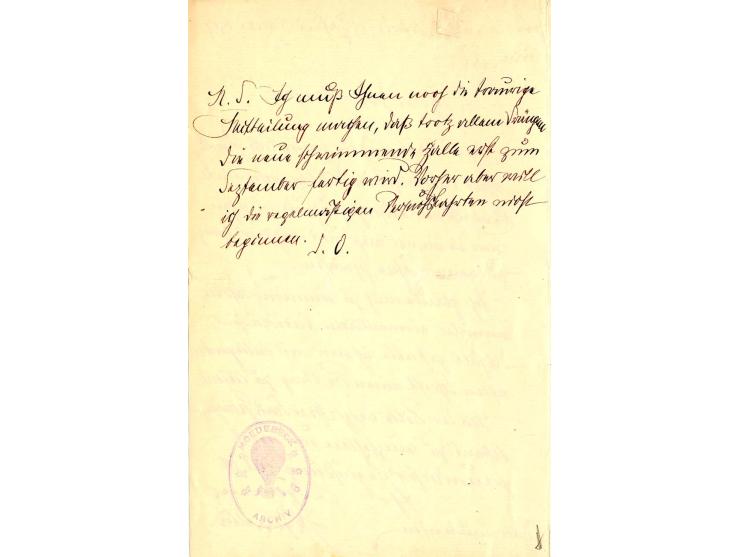 N. S. Ich muß Ihnen noch die traurige
Mitteilung machen, daß trotz allem Drängen
die neue schwimmende Halle erst zum
September fertig wird. Vorher aber will
ich die regelmäßigen Versuchsfahrten nicht
beginnen. D. O.
MOEDEBECK
ARCHIV